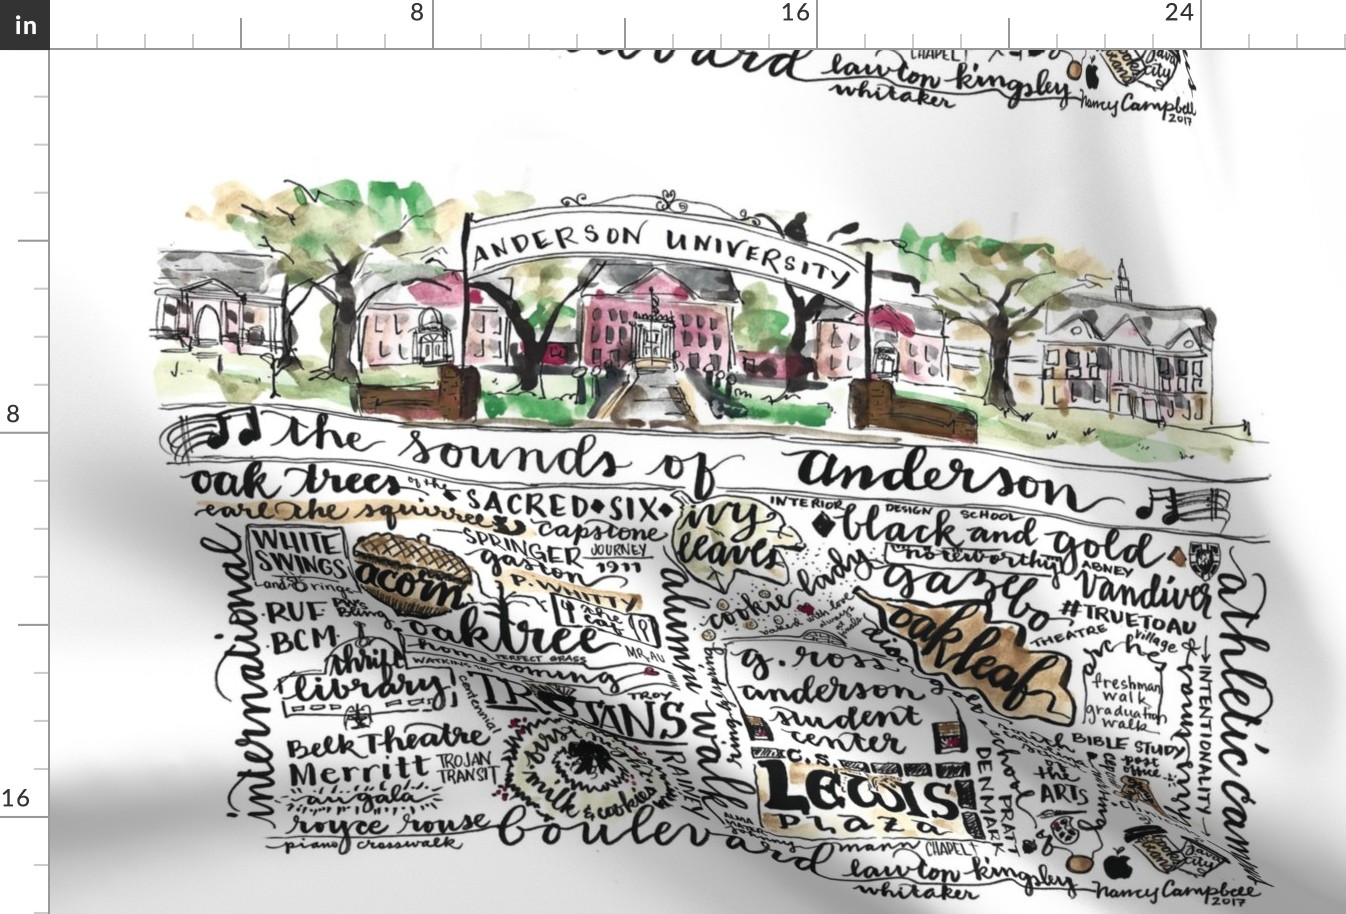 in
8
16
24
8
16
CHAPEL
Java city
lawton kingsley
whitaker
Nancy Campbell
2017
ANDERSON UNIVERSITY
the sounds of anderson
oak trees of the SACRED SIX
earl the squirrel
capstone
SPRINGER
gaston
JOURNEY
1911
P. WHITTY
the caf
WHITE SWINGS
and a ring
acorn
RUF
BCM
oak tree
PERFECT GRASS
homecoming
MR. AU
thrift library
centennial
TROJANS
TROY
Belk Theatre
Merritt
TROJAN TRANSIT
au gala
royce rouse
piano crosswalk
boulevard
milk & cookies
international
alumni walk
ring by spring
ivy leaves
INTERIOR DESIGN SCHOOL
black and gold
noteworthy
gazebo
ABNEY
Vandiver
#TRUETOAU
THEATRE
village
cookie lady
baked with love
always
oak leaf
g. ross anderson student center
G.S.
LEWIS
Plaza
ALMA MATER
mann
CHAPEL
DENMARK
PRATT
freshman walk
graduation walk
INTENTIONALITY
BIBLE STUDY
post office
the ARTS
athletic campus
Java city
lawton kingsley
whitaker
Nancy Campbell
2017